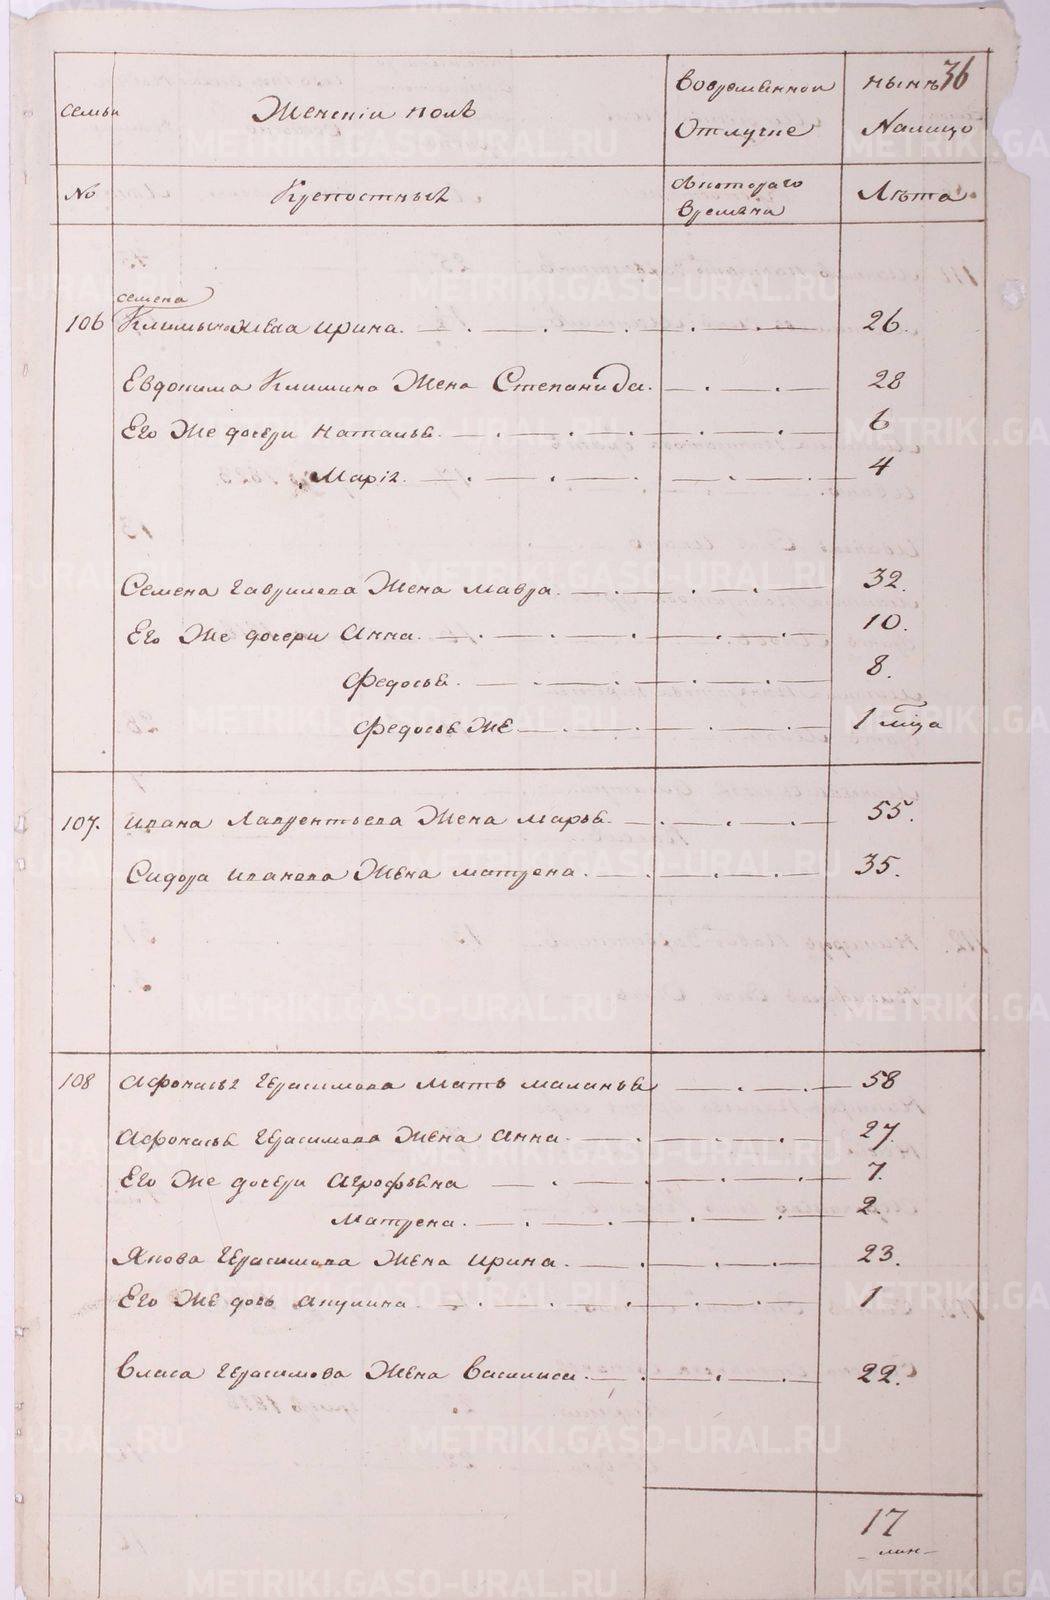 36
семьи Женскій полъ Вовременной отлучке нынѣ Налицо
№ Крепостные Скотораго времѣна Лѣта
семена
106 Климына жена ирина. 26.
Евдокима Климина Жена Степанида. 28
Его Же дочери Наталья. 6
Маріа. 4
Семена Гаврилова Жена мавра. 32.
Его Же дочери Анна. 10.
Федосья. 8.
Федосья Же 1 мца
107. ивана Лаврентьева Жена марья. 55.
Сидора иванова Жена матрена. 35.
108 Афонасья Герасимова мать маланья 58
Афонасья Герасимова Жена анна. 27.
Его Же дочери Агрофѣна 7.
матрена. 2.
Якова Герасимова Жена ирина. 23.
Его Же дочь акулина. 1
Власа Герасимова Жена Василиса. 22.
17
METRIKI.GASO-URAL.RU